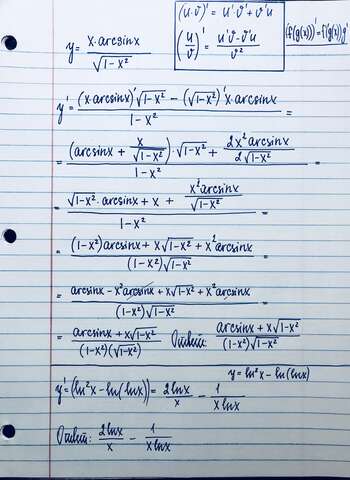 (u·v)' = u'·v + v'u
(u/v)' = (u'v - v'u)/v²
(f(g(x)))' = f'(g(x))g'
y = (x·arcsinx)/√(1-x²)
y' = ((x·arcsinx)'√(1-x²) - (√(1-x²))'x·arcsinx)/(1-x²) =
= ((arcsinx + x/√(1-x²))·√(1-x²) + (2x²arcsinx)/(2√(1-x²)))/(1-x²) =
= (√(1-x²)·arcsinx + x + (x²arcsinx)/√(1-x²))/(1-x²) =
= ((1-x²)arcsinx + x√(1-x²) + x²arcsinx)/((1-x²)√(1-x²)) =
= (arcsinx - x²arcsinx + x√(1-x²) + x²arcsinx)/((1-x²)√(1-x²)) =
= (arcsinx + x√(1-x²))/((1-x²)(√(1-x²)) Ответ: (arcsinx + x√(1-x²))/((1-x²)√(1-x²))
y = ln²x - ln(lnx)
y' = (ln²x - ln(lnx))' = 2lnx/x - 1/(xlnx)
Ответ: 2lnx/x - 1/(xlnx)